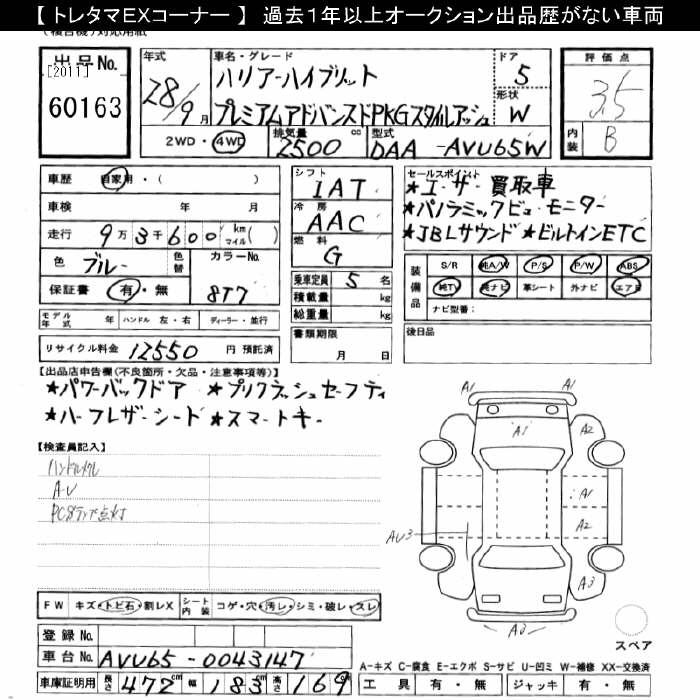 【 トレタマEXコーナー 】 過去1年以上オークション出品歴がない車両
出品No.
[2011]
60163
年式
28/9月
車名・グレード
ハリアーハイブリット
プレミアムアドバンスドPKGスタイルアッシュ
ドア
5
形状
W
2WD・4WD
排気量
2500 cc
型式
DAA-AVU65W
評価点
3.5
内装
B
車歴 自家用・( )
車検 年 月
走行 9万3千600 km マイル( )
色 ブルー 色替 カラーNo.
保証書 有・無 8T7
モデル年式 年 ハンドル 左・右 ディーラー・並行
リサイクル料金 12550 円 預託済
シフト
IAT
冷房
AAC
燃料
G
乗車定員 5 名
積載量 kg
総重量 kg
書類期限
月 日
セールスポイント
★ユーザー買取車
★パノラミックビューモニター
★JBLサウンド ★ビルトインETC
装備品
S/R 純A/W P/S P/W ABS
純TV 純ナビ 革シート 外ナビ エアB
ナビ型番:
後日品
【出品店申告欄(不良箇所・欠品・注意事項等)】
★パワーバックドア ★プリクラッシュセーフティ
★ハーフレザーシート ★スマートキー
【検査員記入】
ハンドルスレ
A・U
PCSランプ点灯
A1
A1
A1
A2
A1
A2
AU3
A3
A3
FW キズ・トビ石・割レX シート内装 コゲ・穴・汚レ・シミ・破レ・スレ
登録No.
車台No. AVU65-0043147
車庫証明用 長さ 472 cm 幅 183 cm 高さ 169 cm
スペア
A-キズ C-腐食 E-エクボ S-サビ U-凹ミ W-補修 XX-交換済
工具 有・無 ジャッキ 有・無